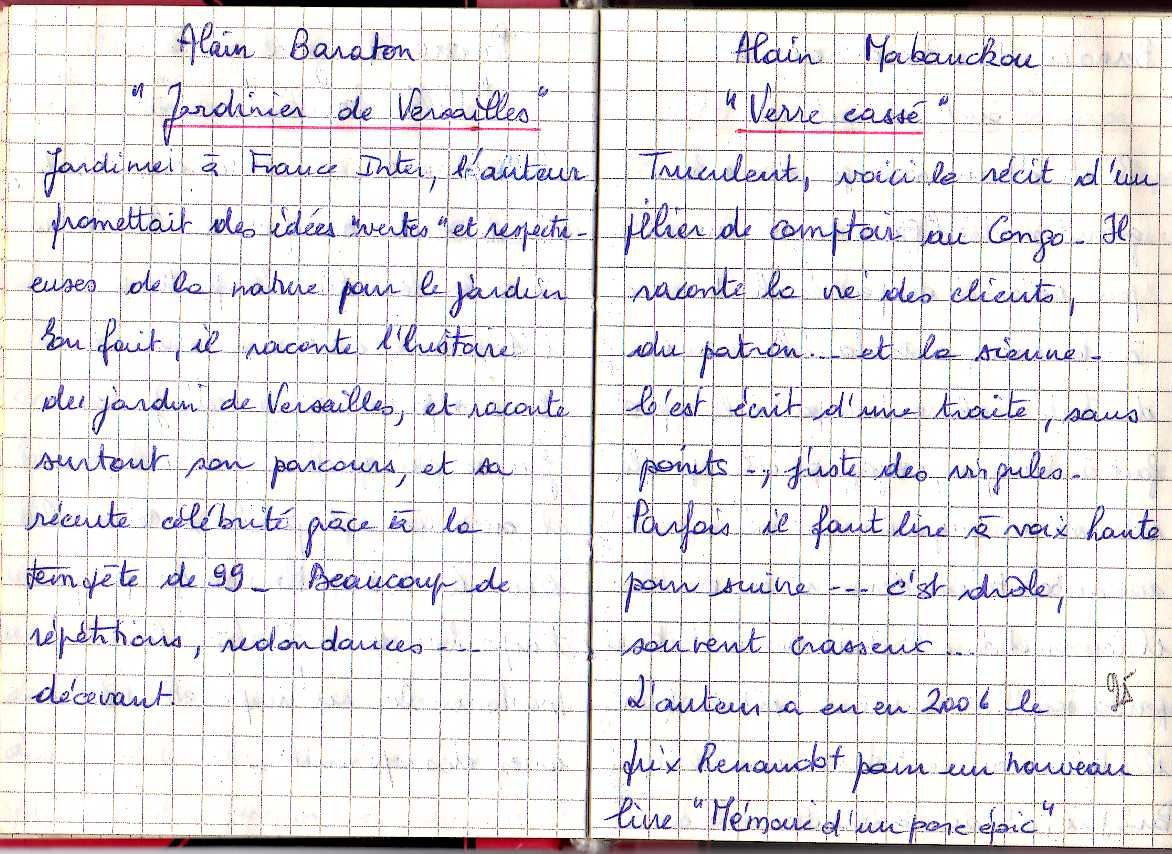 Alain Baraton
"Jardinier de Versailles"
Jardinier à France Inter, l'auteur
promettait des idées "vertes" et respectu-
euses de la nature pour le jardin
En fait, il raconte l'histoire
du jardin de Versailles, et raconte
surtout son parcours, et sa
récente célébrité grâce à la
tempête de 99_ Beaucoup de
répétitions, redondances ---
décevant.
Alain Mabanckou
"Verre cassé"
Truculent, voici le récit d'un
pilier de comptoir au Congo_ Il
raconte la vie des clients,
du patron... et la sienne_
C'est écrit d'une traite, sans
points -, juste des virgules_
Parfois il faut lire à voix haute
pour suivre --- c'est drôle,
souvent crasseux...
L'auteur a eu en 2006 le
prix Renaudot pour un nouveau
livre "Mémoire d'un porc épic"
95